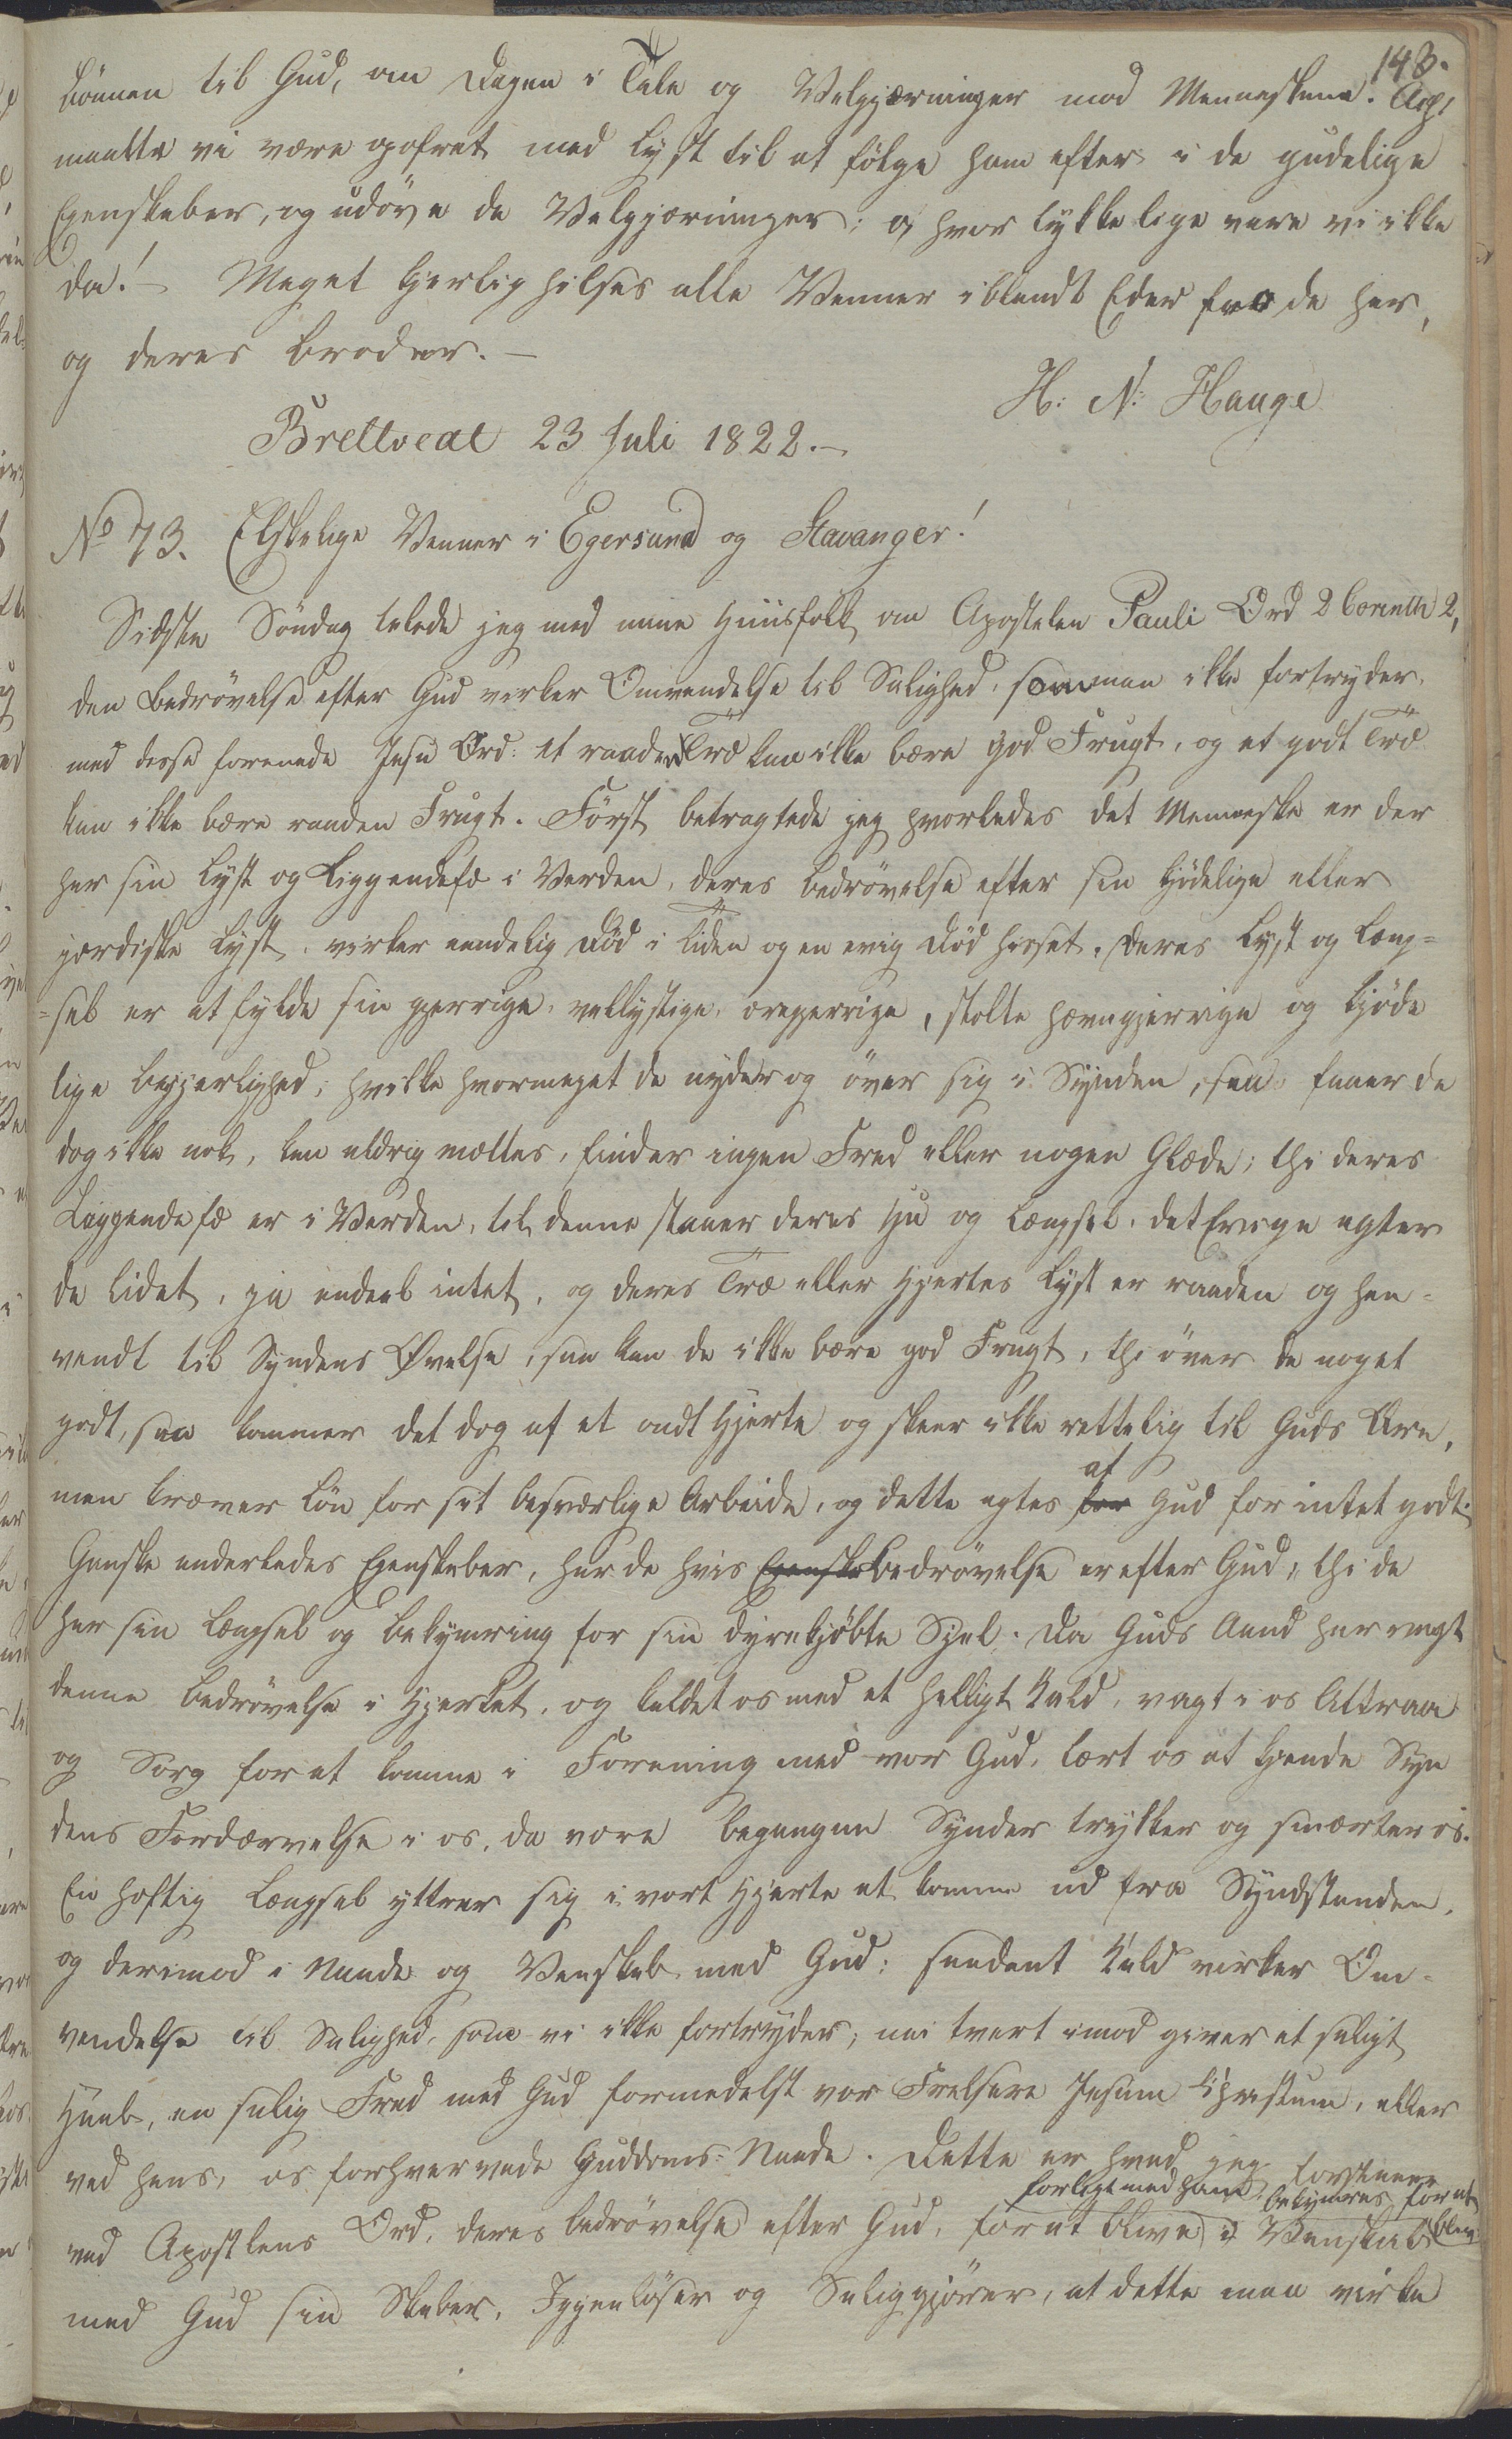 143.
Bönnen til Gud, om Dagen i Tale og Velgjærninger mod Menneskene. Ach!
maatte vi være opofret med Lyst til at fölge ham efter i de gudelige
Egenskaber, og udöve de Velgjærninger; o, hvor lykkelige vare vi ikke
da! – Meget kjerlig hilses alle Venner iblandt Eder fra de her,
og deres Broder. –
H: N: Hauge
Brettvedt 23 Juli 1822. –
No 73. Elskelige Venner i Egersund og Stavanger!
Sidste Söndag talede jeg med mine Huusfolk om Apostelen Pauli Ord 2 Corinth 2,
den Bedrövelse efter Gud virker Omvendelse til Salighed, som man ikke fortryder,
med disse forenede Jesu Ord: et raadent Træ kan ikke bære god Frugt, og et godt Træ
kan ikke bære raaden Frugt. Först betragtede jeg hvorledes det Menneske er der
har sin Lyst og Liggendefæ i Verden, deres Bedrövelse efter sin kjödelige eller
jordiske Lyst, virker aandelig Död i Tiden og en evig Död hisset. Deres Lyst og Læng=
=sel er at fylde sin gjerrige, vellystige, æregjerrige, stolte hævngjerrige og kjöde
lige Begjerlighed; hvilke hvormeget de nyder og över sig i Synden, saa faaer de
dog ikke nok, kan aldrig mættes, finder ingen Fred eller nogen Glæde; thi deres
Liggendefæ er i Verden, til denne staaer deres Hu og Længsel, det Evige agter
de lidet, ja andeel intet, og deres Træ eller Hjertes Lyst er raaden og hen=
vendt til Syndens Øvelse, saa kan de ikke bære god Frugt, thi över de noget
godt, saa kommer det dog af et ondt Hjerte og skeer ikke rettelig til Guds Ære,
men kræver Lön for sit besværlige Arbeide, og dette agtes for af Gud for intet godt.
Ganske anderledes Egenskaber, har de hvis Egenska Bedrövelse er efter Gud, thi de
har sin Længsel og Bekymring for sin dyrekjöbte Sjel. Da Guds Aand har vagt
denne Bedrövelse i Hjertet, og kaldet os med et helligt Kald, vagt i os Attraa
og Sorg for at komme i Forening med vor Gud, lært os at kjende Syn
dens Fordærvelse i os, da vore begangne Synder trykker og smærter os.
En heftig Længsel yttrer sig i vort Hjerte at komme ud fra Syndstanden,
og derimod i Naade og Venskab med Gud; saadant Kald virker Om=
vendelse til Salighed, som vi ikke fortryder; nei tvert imod giver et saligt
Haab, en salig Fred med Gud formedelst vor Frelsere Jesum Christum, eller
ved hans, os forhvervede Guddoms=Naade. Dette er hvad jeg forstaaer
forligt med ham, bekymres for at
ved Apostlens Ord, deres Bedrövelse efter Gud, for at blive i Venskab bliv
med Gud sin Skaber, Igjenlöser og Saliggjörer, at dette maa virke